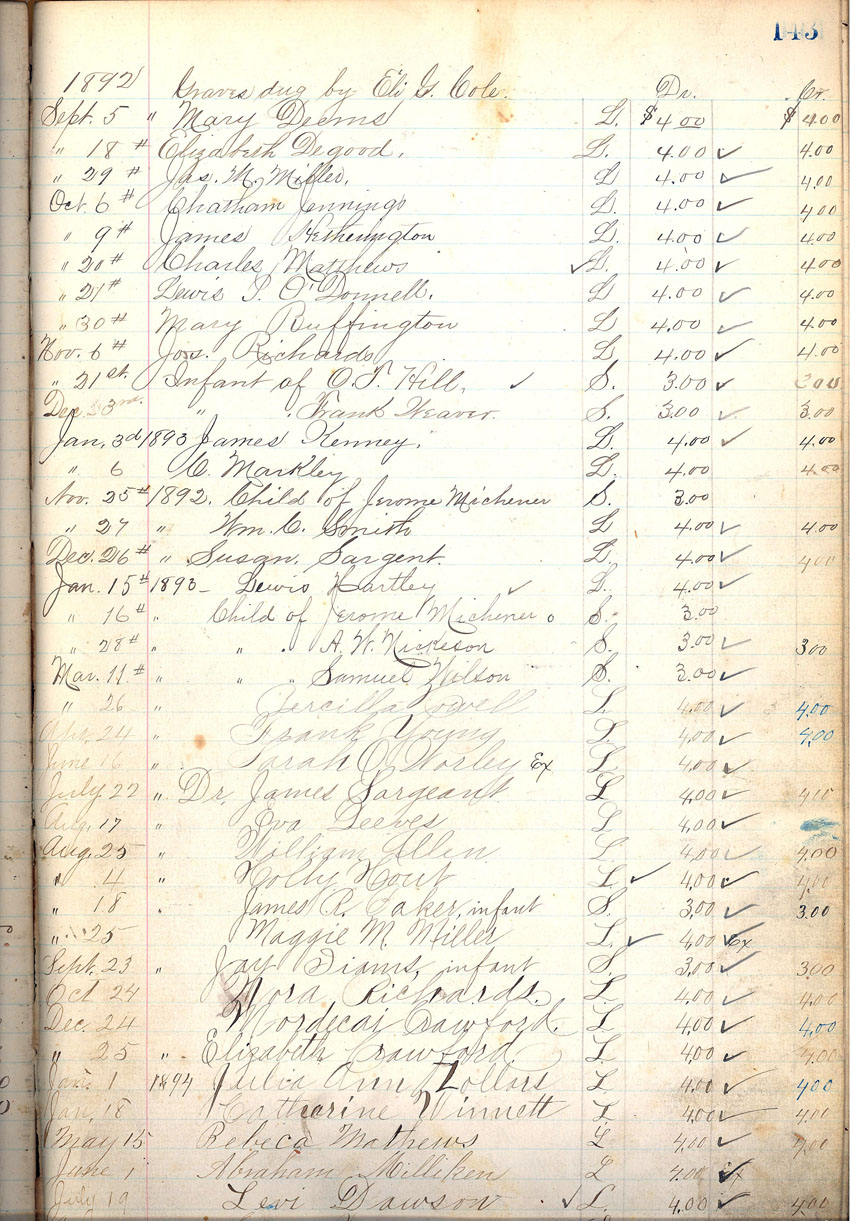 143
1892 Graves dug by Eli G. Cole. Dr. Cr.
Sept. 5 " Mary Deems L. $4.00 $4.00
" 18th Elizabeth Degood. L. 4.00 ✓ 4.00
" 29th Jas. M. Miller. L 4.00 ✓ 4.00
Oct. 6th Chatham Jennings L. 4.00 ✓ 4.00
" 9th James Hetherington L. 4.00 ✓ 4.00
" 20th Charles Matthews ✓ L. 4.00 ✓ 4.00
" 21th Lewis P. O'Donnell. L 4.00 ✓ 4.00
" 30th Mary Buffington L 4.00 ✓ 4.00
Nov. 6th Jos. Richards L 4.00 ✓ 4.00
" 21st. Infant of O. T. Hill. ✓ S. 3.00 ✓ 3.00
Dec. 23rd. " Frank Weaver. S. 3.00 ✓ 3.00
Jan. 3d 1893 James Kenney. L. 4.00 ✓ 4.00
" 6 C. Markley L. 4.00 4.00
Nov. 25th 1892. Child of Jerome Michener S. 3.00
" 27 " Wm. C. Smith L 4.00 ✓ 4.00
Dec. 26th " Susan. Sargent. L. 4.00 ✓ 4.00
Jan. 15th 1893 - Lewis Hartley ✓ L. 4.00 ✓
" 16th " Child of Jerome Michener o S. 3.00
" 28th " " " A. W. Nickeson S. 3.00 ✓ 3.00
Mar. 11th " " " Samuel Wilson S. 3.00 ✓
" 26 " L. 4.00 ✓ 4.00
Apr. 24 " Frank Young L 4.00 ✓ 4.00
June 16 " Sarah C. Worley Ex L 4.00 ✓
July 22 " Dr. James Sargeant L 4.00 ✓ 4.00
Aug. 17 " Eva Deeves L 4.00 ✓
Aug. 25 " William Allen L. 4.00 ✓ 4.00
" 4 " L ✓ 4.00 ✓ 4.00
" 18 " James R. Baker, infant S. 3.00 ✓ 3.00
" 25 Maggie M. Miller L. ✓ 4.00 ✓ Ex
Sept. 23 " Jay Diams, infant S. 3.00 ✓ 3.00
Oct 24 Nora Richards. L. 4.00 ✓ 4.00
Dec. 24 Mordecai Crawford. L 4.00 ✓ 4.00
" 25 " Elizabeth Crawford L 4.00 ✓ 4.00
Jan. 1 1894 Julia Ann Zollars L 4.00 ✓ 4.00
Jan. 18 Catharine Winnett L 4.00 ✓ 4.00
May 15 Rebeca Mathews L 4.00 ✓ 4.00
June 1 Abraham Milliken L 4.00 ✓ Ex
July 19 Levi Dawson ✓ L. 4.00 ✓ 4.00